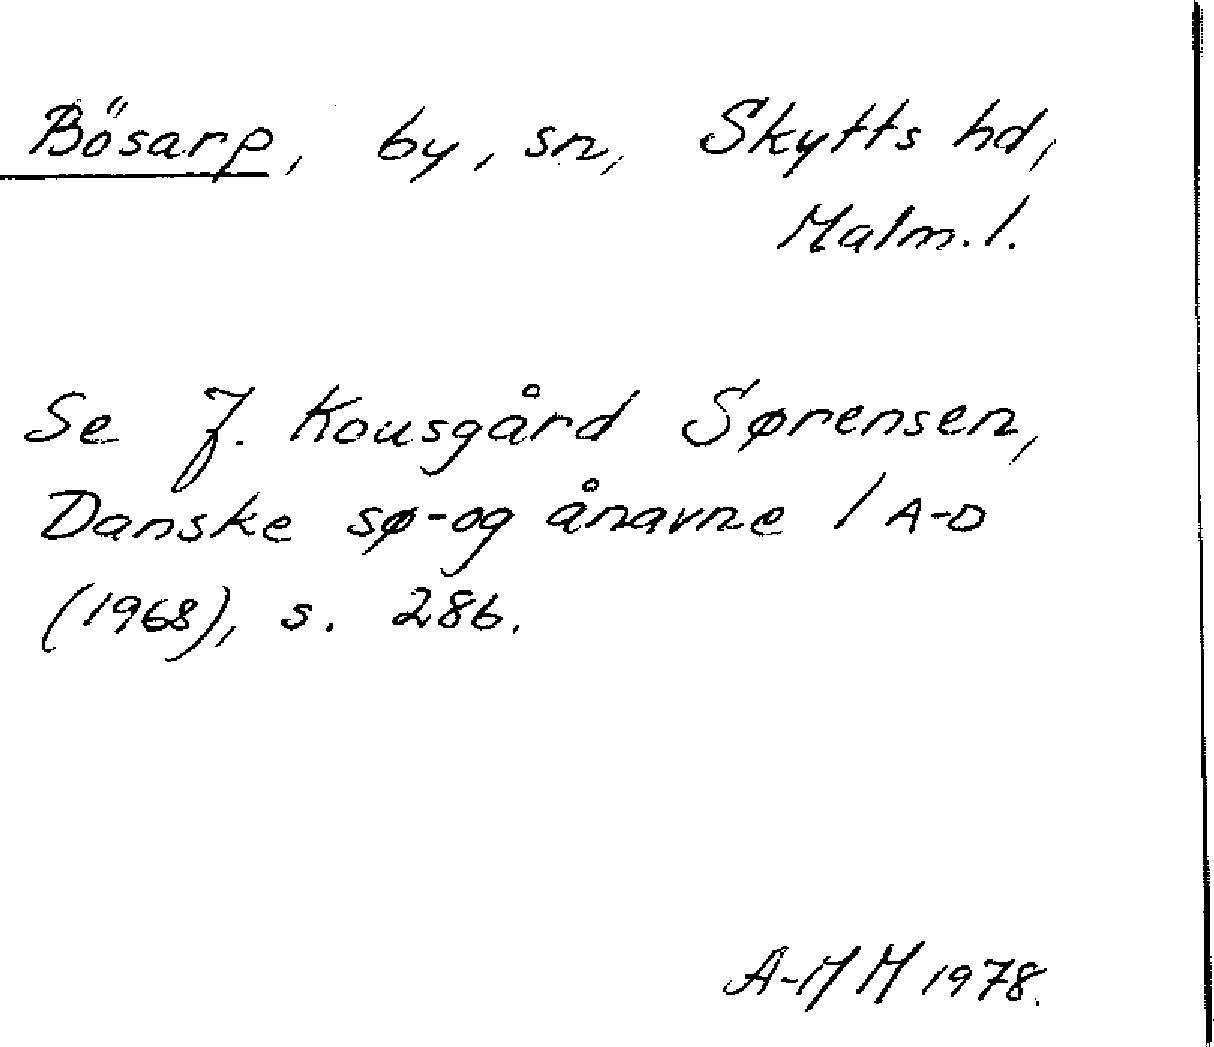 Bösarp, by, sn, Skytts hd,
Malm. l.
Se J. Kousgård Sørensen,
Danske sø- og ånavne 1 A-D
(1968), s. 286.
A-M M 1978.